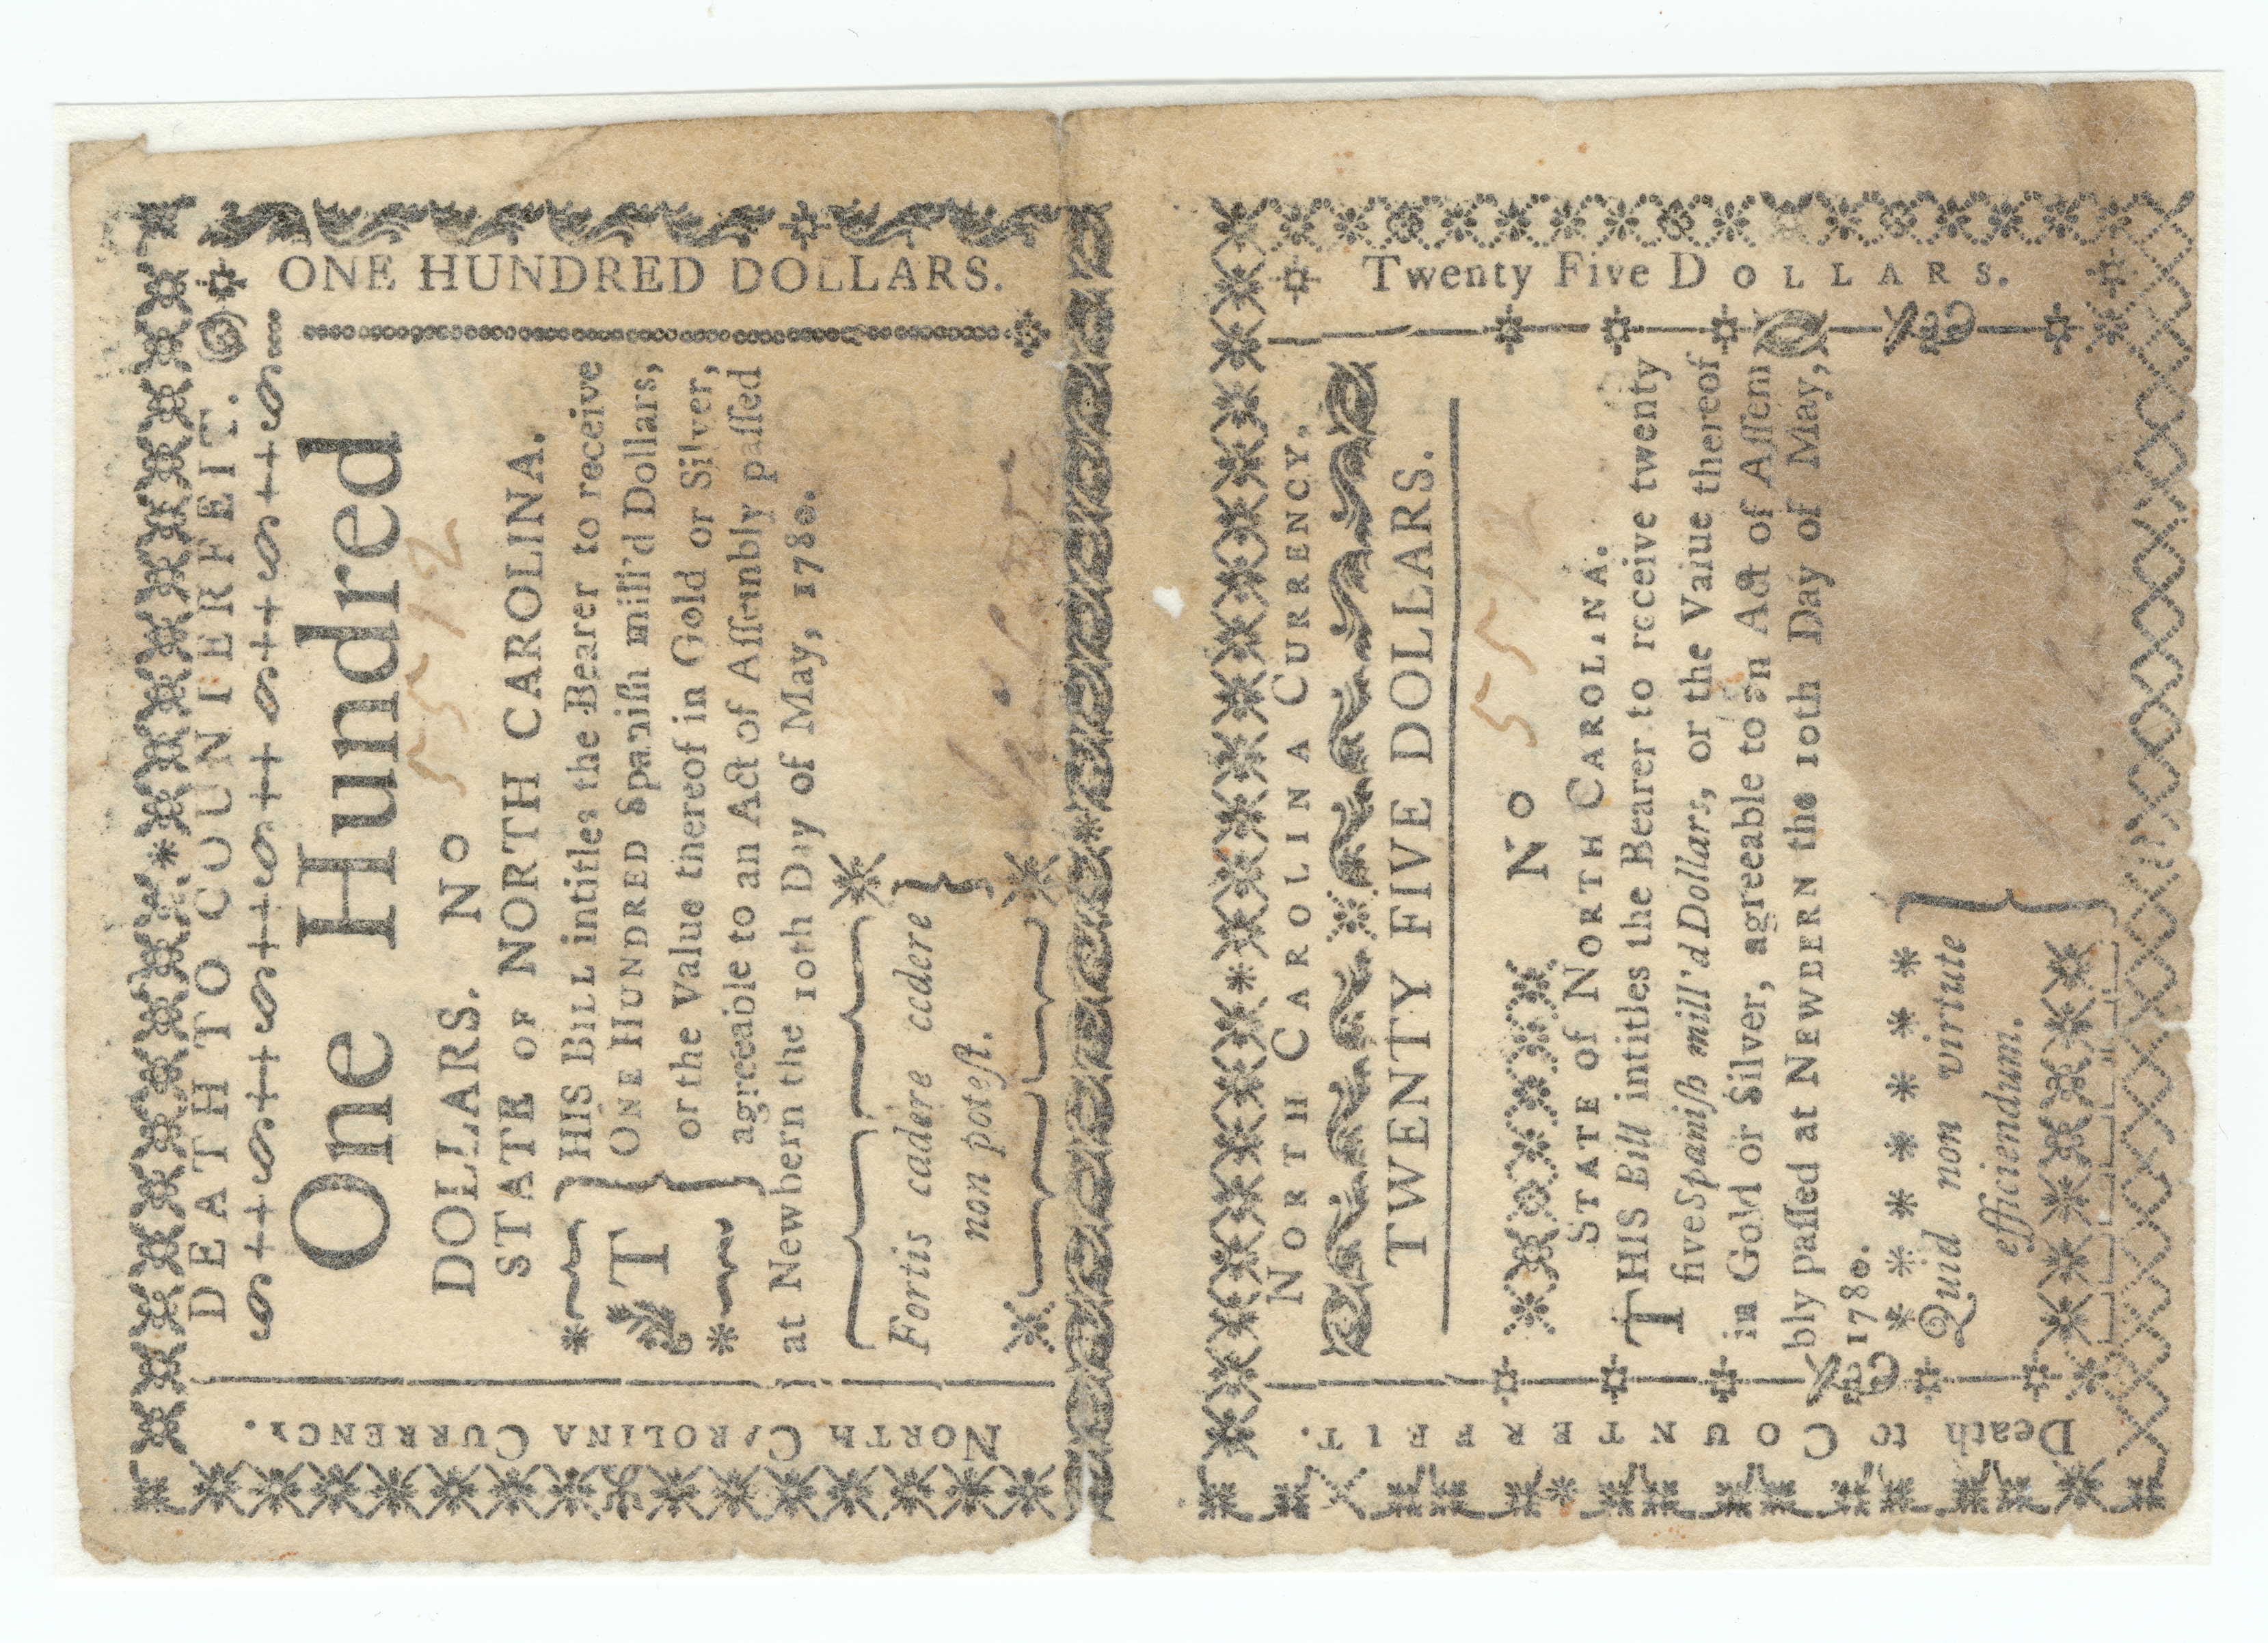 ONE HUNDRED DOLLARS.
DEATH TO COUNTERFEIT.
NORTH CAROLINA CURRENCY.
One Hundred
DOLLARS. No 5572
STATE OF NORTH CAROLINA.
THIS BILL intitles the Bearer to receive
ONE HUNDRED Spaniſh mill'd Dollars,
or the Value thereof in Gold or Silver,
agreeable to an Act of Aſſembly paſſed
at Newbern the 10th Day of May, 1780.
Fortis cadere cedere
non poteſt.
Twenty Five DOLLARS.
NORTH CAROLINA CURRENCY.
Death to COUNTERFEIT.
TWENTY FIVE DOLLARS.
No 5572
STATE of NORTH CAROLINA.
THIS Bill intitles the Bearer to receive twenty
five Spaniſh mill'd Dollars, or the Value thereof
in Gold or Silver, agreeable to an Act of Aſſem
bly paſſed at NEWBERN the 10th Day of May,
1780.
Quid non virtute
efficiendum.